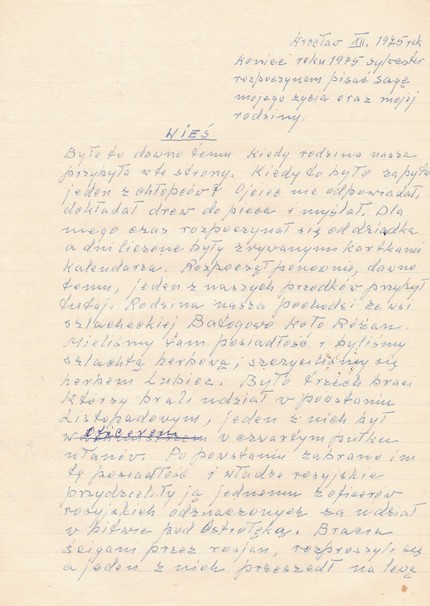 Wrocław XII. 1975 rok
Koniec roku 1975 sylwester
rozpoczynam pisać sagę
mojego życia oraz mojej
rodziny.
WIEŚ
Było to dawno temu kiedy rodzina nasza
przybyła w te strony. Kiedy to było zapytał
jeden z chłopców? Ojciec nie odpowiadał,
dokładał drew do pieca i myślał. Dla
niego czas rozpoczynał się od dziadka
a dni liczone były zrywanymi kartkami
kalendarza. Rozpoczął ponownie, dawno
temu, jeden z naszych przodków przybył
tutaj. Rodzina nasza pochodzi ze wsi
szlacheckiej Batogowo koło Różan.
Mieliśmy tam posiadłość i byliśmy
szlachtą herbową, szczyciliśmy się
herbem Lubicz. Było trzech braci
którzy brali udział w powstaniu
Listopadowym, jeden z nich był
oficerem w czwartym pułku
ułanów. Po powstaniu zabrano im
tę posiadłość i władze rosyjskie
przydzieliły ją jednemu z oficerów
rosyjskich odznaczonych za udział
w bitwie pod Ostrołęką. Bracia
ścigani przez rosjan, rozproszyli się
a jeden z nich przeszedł na lewą